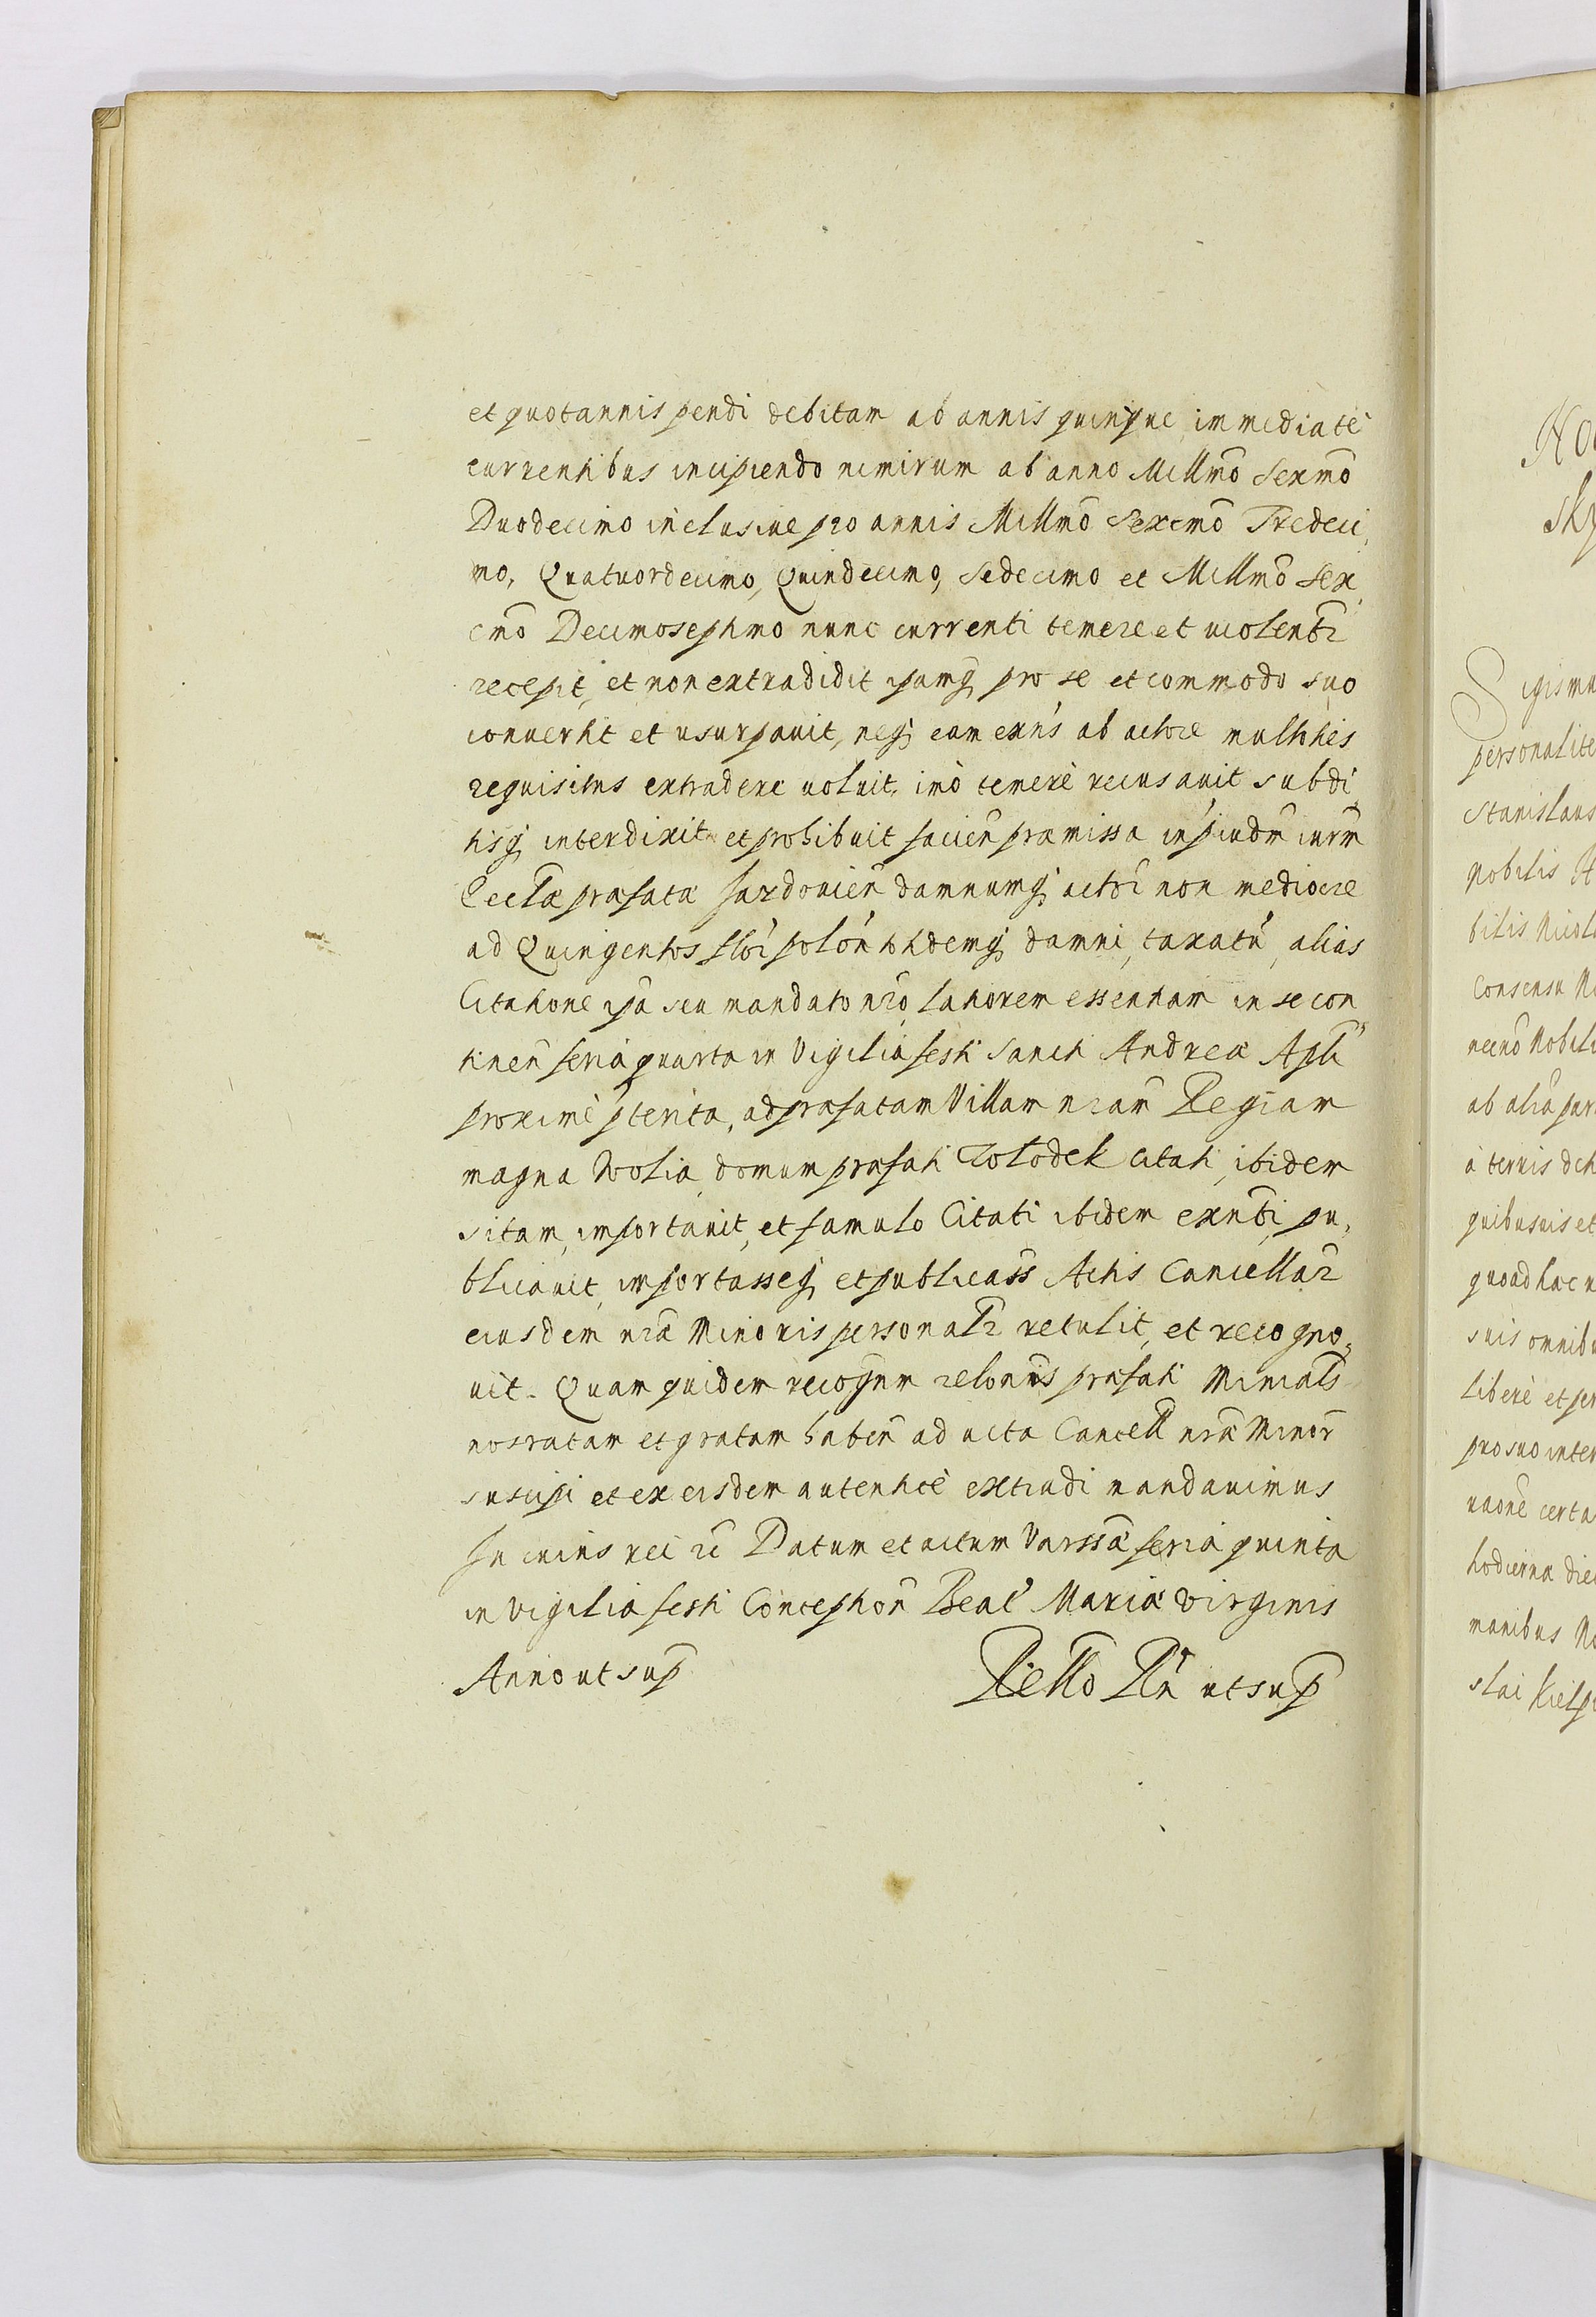 et quotannis pendi debitam ab annis quinque immediatè
currentibus incipiendo nimirum ab anno Millmo Sexmo
Duodecimo inclusiue pro annis Millmo Sexcmo Tredeci,
mo, Quatuordecimo, Quindecimo, Sedecimo et Millmo Sex,
cmo Decimoseptimo nunc currenti temere et uiolentr
recepit, et non extradidit ipamq pro se et commodo suo
conuertit et usurpauit, neq eam exns ab actore multities
requisitus extradere uoluit, imò temerè recusauit subdi,
tisq interdixit et prohibuit facien præmissa in piudm iurm
Ecclæ præfatæ damnumq actori non mediocre
ad Quingentos flor polon totidemq damni taxatu, alias
Citatione ipa seu mandato nro latiorem essentiam in se con
tinen feria quarta in Vigilia festi Sancti Andreæ Apli
proximè pterita, ad præfatam Villam nram Regiam
magna Wolia, domum præfati Citati, ibidem
sitam, importauit, et famulo Citati ibidem exnti, pu,
blicauit, importasseq et publicass Actis Cancellar
eiusdem nræ Minoris personalr retulit, et recogno,
uit. Quam quidem recognm relonnis præfati Minials
nos ratam et gratam haben ad acta Cancell nræ Minor
suscipi et ex eisdem autenticè extradi mandauimus
In cuius rei rc Datum et actum Varssæ feria quinta
in Vigilia festi Conception Beat Mariæ Virginis
Anno ut sup
Rello Rn ut sup
Sigismu
personalite
Stanislaus
Nobilis
bilis Nicol
Consensu
necno Nobili
ab alia par
à terris
quibusuis et
quoad hac
suis omnibu
Liberè et per
pro suo inter
certa
hodierna die
manibus No
slai